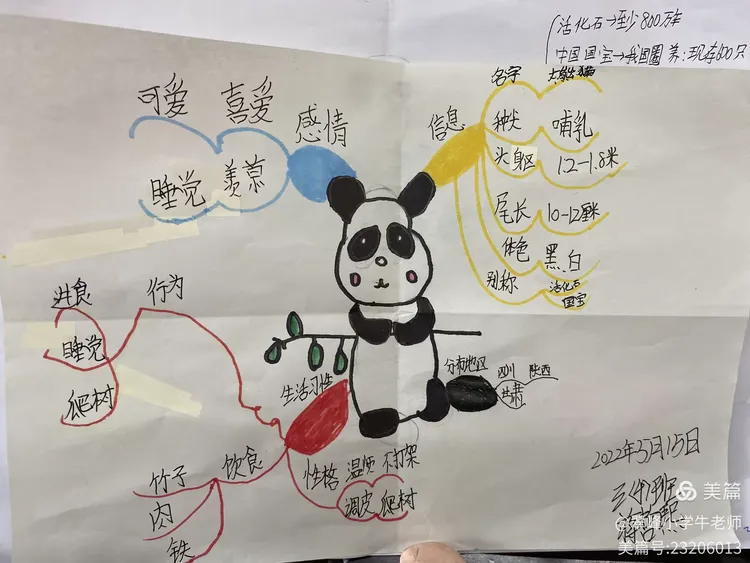 活化石→至少800万年
中国国宝→我国圈养:现存600只
可爱
喜爱
感情
睡觉
羡慕
信息
名字
大熊猫
种类
哺乳
头躯
1.2-1.8米
尾长
10-12厘米
体色
黑白
别称
活化石
国宝
进食
行为
睡觉
爬树
生活习性
饮食
竹子
肉
铁
性格
温顺
不打架
调皮
爬树
分布地区
四川
陕西
甘肃
2022年3月15日
美篇
小学牛老师
美篇号:23206013